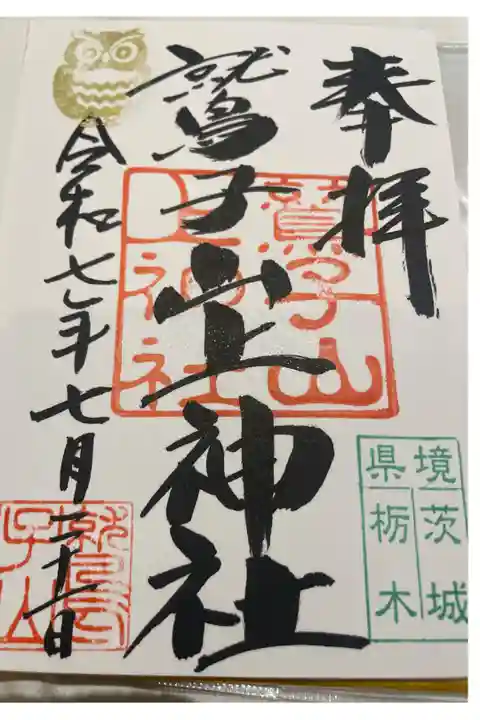 奉拝
鷲子山上神社
鷲子山
上神社
境茨城
県栃木
令和七年七月二十一日
鷲
子山